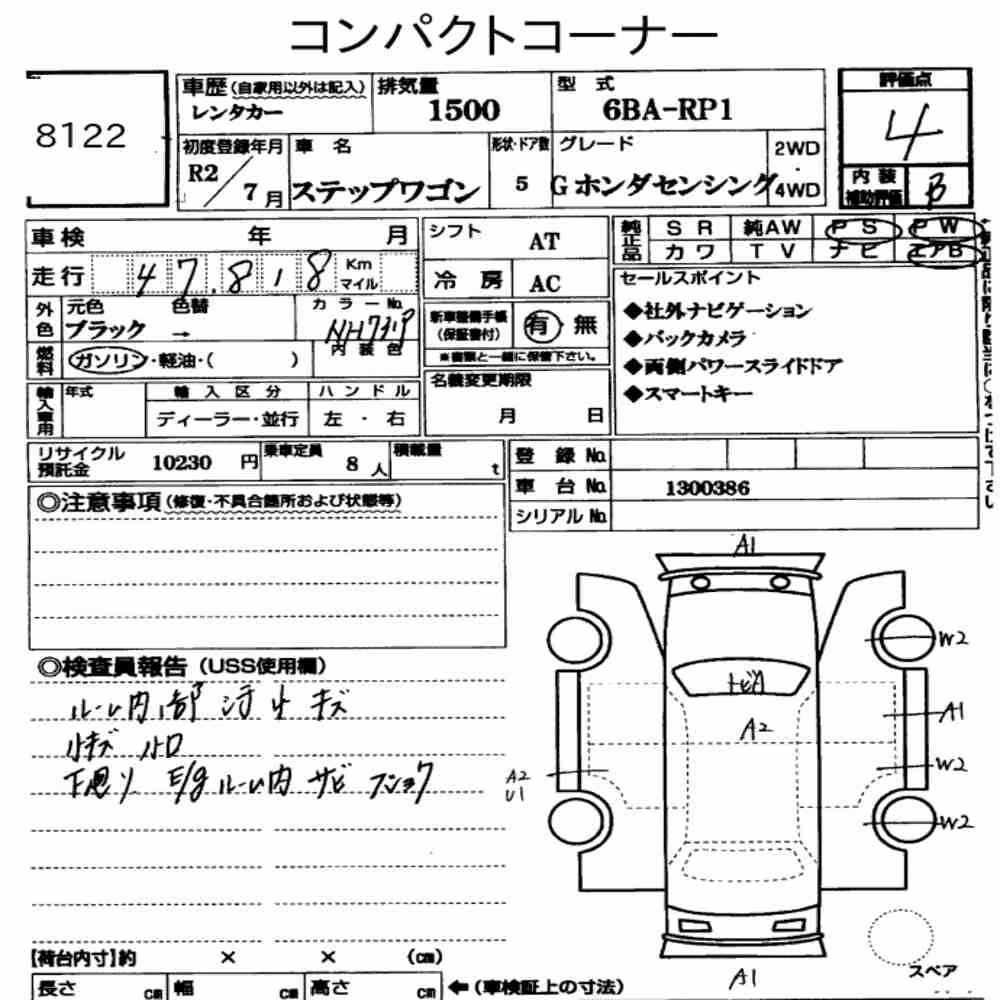 コンパクトコーナー
8122
車歴 (自家用以外は記入) 排気量 型 式 評価点
レンタカー 1500 6BA-RP1 4
初度登録年月 車 名 形状・ドア数 グレード 2WD
R2/7月 ステップワゴン 5 G ホンダセンシング 4WD
内装補助評価 B
車検 年 月 シフト AT 純正品 SR 純AW PS PW
カワ TV ナビ エアB
走行 47,818 Km マイル 冷房 AC
セールスポイント
◆社外ナビゲーション
◆バックカメラ
◆両側パワースライドドア
◆スマートキー
外色 元色 色替 カラーNo.
ブラック → 内装色
新車整備手帳(保証書付) 有・無
※書類と一緒に保管下さい。
燃料 ガソリン・軽油・( )
名義変更期限
月 日
輸入車用 年式 輸入区分 ハンドル
ディーラー・並行 左・右
リサイクル預託金 10230 円 乗車定員 8 人 積載量 t
登録No.
車台No. 1300386
シリアルNo.
◎注意事項 (修復・不具合箇所および状態等)
◎検査員報告 (USS使用欄)
ルーム内部 汚 小キズ
小キズ 小凹
下廻り E/gルーム内 サビ フショク
A1
W2
トビA
A2
A1
W2
A2
U1
W2
A1
スペア
【荷台内寸】約 × × (cm)
長さ cm 幅 cm 高さ cm ←(車検証上の寸法)